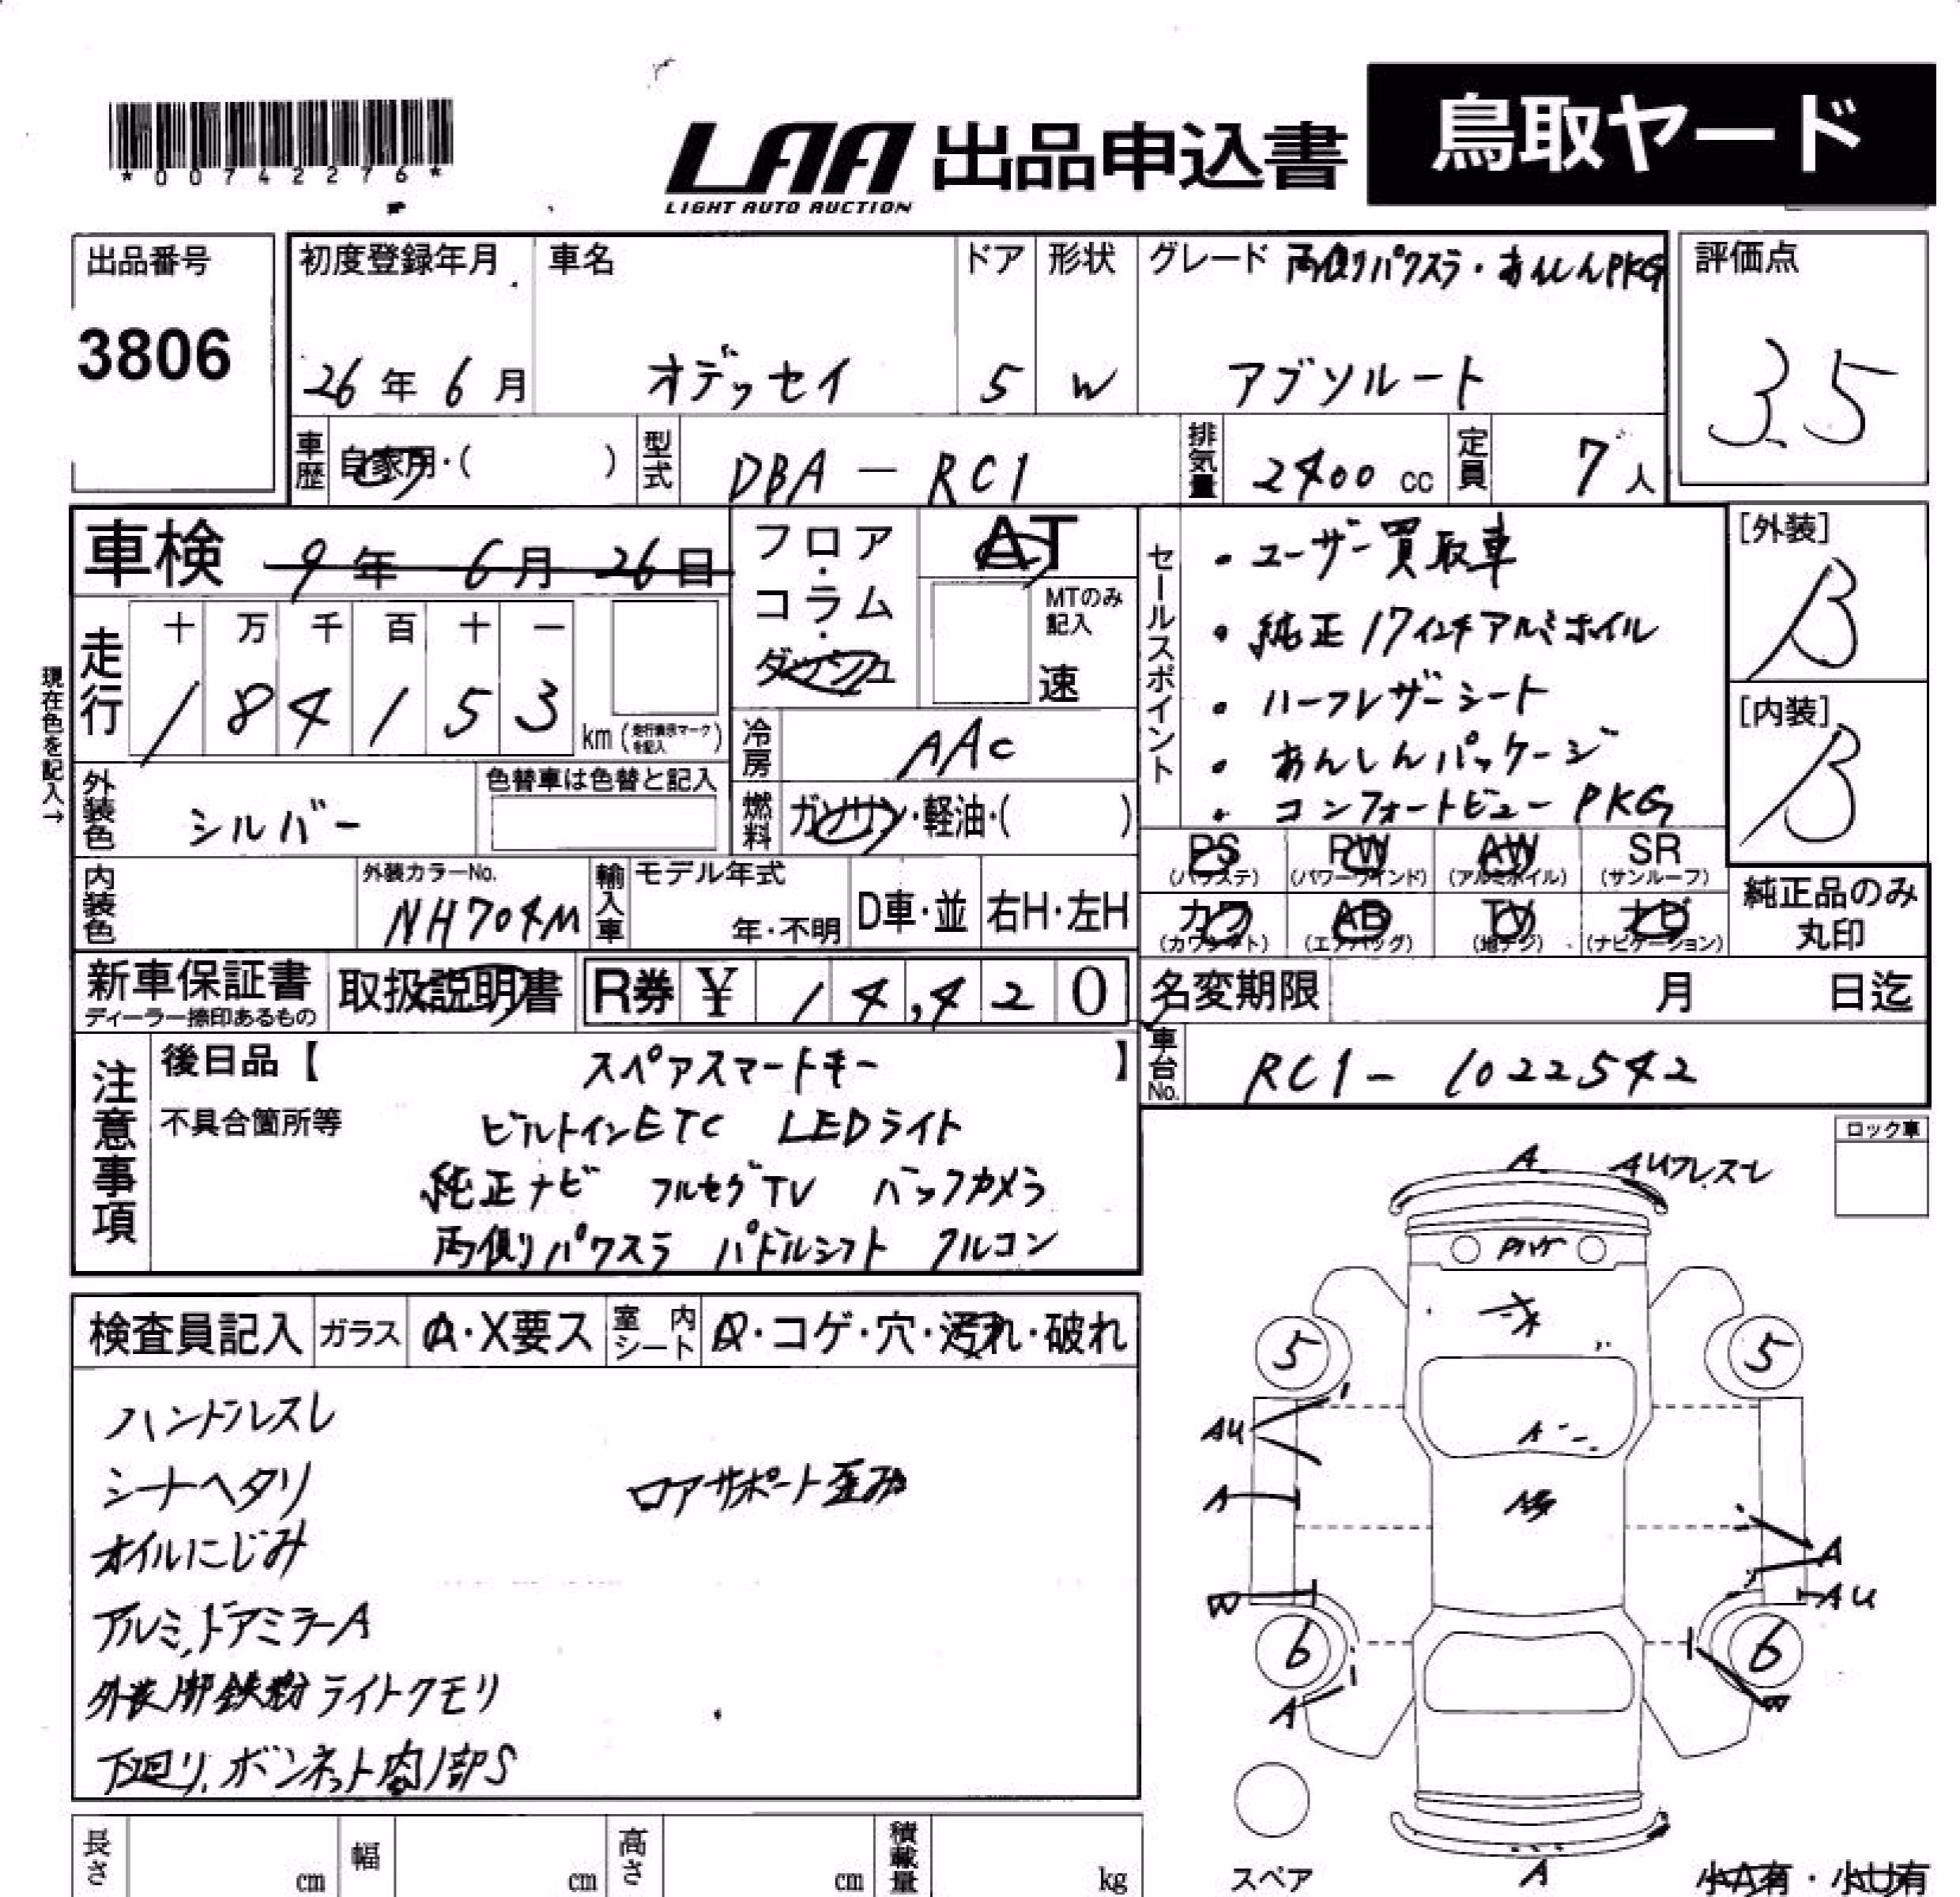 *00742276*
LAA 出品申込書 鳥取ヤード
LIGHT AUTO AUCTION
出品番号 3806
初度登録年月 26年6月
車名 オデッセイ
ドア 5
形状 W
グレード 両側パワスラ・あんしんPKG
アブソルート
評価点 3.5
車歴 自家用・( )
型式 DBA-RC1
排気量 2400cc
定員 7人
車検 9年6月26日
現在色を記入→
走行 十万千百十一
184153 km (走行表示マークを記入)
フロア・コラム・ダッシュ
AT
MTのみ記入
速
冷房 AAC
燃料 ガソリン・軽油・( )
外装色 シルバー
色替車は色替と記入
内装色
外装カラーNo. NH704M
輸入車 モデル年式 年・不明
D車・並 右H・左H
セールスポイント
・ユーザー買取車
・純正17インチアルミホイル
・ハーフレザーシート
・あんしんパッケージ
・コンフォートビューPKG
[外装] B
[内装] B
PS (パワステ) PW (パワーウインド) AW (アルミホイル) SR (サンルーフ)
カワ (カワシート) AB (エアバッグ) TV (地デジ) ナビ (ナビゲーション)
純正品のみ丸印
新車保証書 ディーラー捺印あるもの
取扱説明書
R券 ¥14,420
名変期限 月 日迄
車台No. RC1-1022542
注意事項
後日品【 スペアスマートキー 】
不具合箇所等 ビルトインETC LEDライト
純正ナビ フルセグTV バックカメラ
両側パワスラ パドルシフト クルコン
検査員記入 ガラス A・X要ス 室内シート ・コゲ・穴・汚れ・破れ
ハンドルスレ
シートヘタリ ロアサポート歪み
オイルにじみ
アルミ、ドアミラーA
外装 鉄粉 ライトクモリ
下廻り、ボンネット内部S
ロック車
A AUプレスヒ
5 5
AU
A
A
W AU
6 6
A W
スペア
A
小A有・小U有
長さ cm 幅 cm 高さ cm 積載量 kg